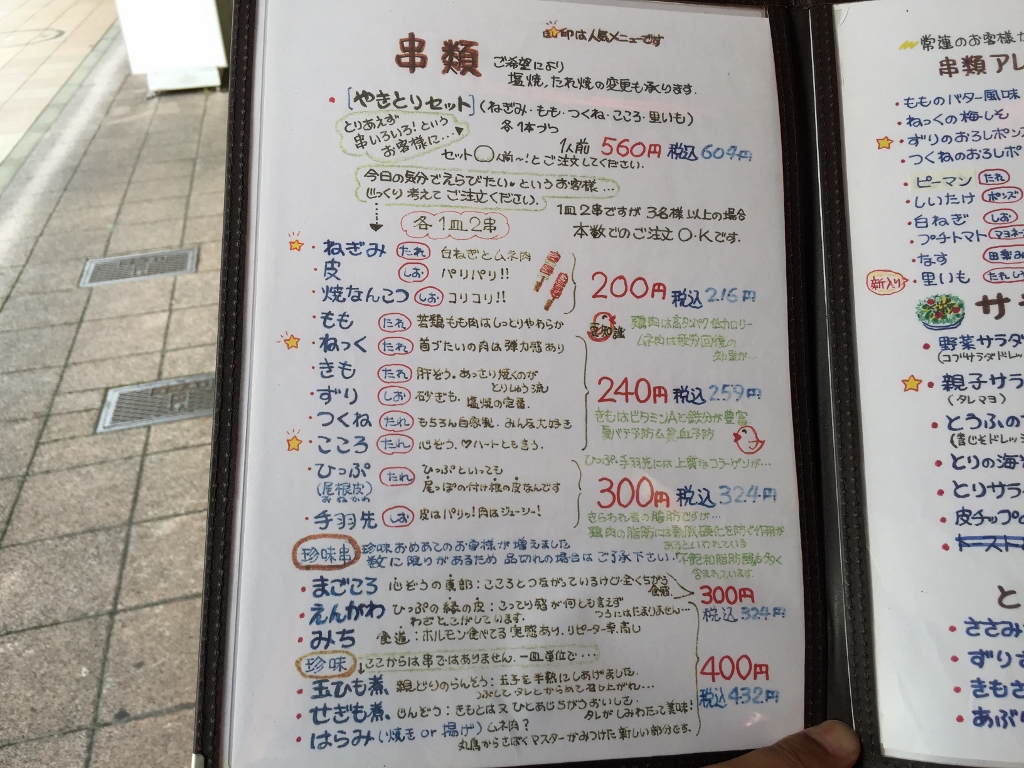 印は人気メニューです
串類
ご希望により
塩焼、たれ焼の変更も承ります。
・[やきとりセット](ねぎみ・もも・つくね・こころ・里いも)
各1本づつ
とりあえず
串いろいろ!という
お客様に…
1人前 560円 税込604円
セット〇人前~!とご注文してください。
今日の気分でえらびたい♥というお客様…
じっくり考えてご注文ください。
各1皿2串
1皿2串ですが3名様以上の場合
本数でのご注文O・Kです。
・ねぎみ たれ 白ねぎとムネ肉
・皮 しお パリパリ!!
・焼なんこつ しお コリコリ!!
200円 税込216円
・もも たれ 若鶏もも肉はしっとりやわらか
・ねっく たれ 首づたいの肉は弾力感あり
豆知識
鶏肉は高タンパク低カロリー
ムネ肉は疲労回復の
効果が…
・きも たれ 肝ぞう。あっさり焼くのが
とりしゅう流
・ずり しお 砂ぎも。塩焼の定番。
・つくね たれ もちろん自家製。みんな大好き
・こころ たれ 心ぞう。♡ハートとも言う。
240円 税込259円
きもはビタミンAと鉄分が豊富
夏バテ予防&貧血予防
・ひっぷ たれ ひっぷといっても
(尾根皮) 尾っぽの付け根の皮なんです
おねかわ
・手羽先 しお 皮はパリッ!肉はジューシー!
ひっぷ・手羽先には上質なコラーゲンが…
300円 税込324円
きらわれ者の脂肪ですが…
鶏肉の脂肪には動脈硬化を防ぐ作用が
あるといわれている
不飽和脂肪酸も多く
含まれています。
珍味串 珍味おめあてのお客様が増えました
数に限りがあるため品切れの場合はご了承下さい。
・まごころ 心ぞうの真部:こころとつながっているけど全くちがう
食感。
300円
税込324円
・えんがわ ひっぷの縁の皮:こってり感が何とも言えず
つうにはたまりません…
わざとこがしています。
・みち 食道:ホルモン食べてる実感あり。リピーター率高し
珍味 ここからは串ではありません。一皿単位で…
・玉ひも煮、親どりのらんそう:玉子を半熟にしあげました。
つぶしてタレとからめて召し上がれ…
・せぎも煮、じんぞう:きもとは又ひとあじちがうおいしさ。
タレがしみわたって美味!
・はらみ(焼き or 揚げ) ムネ肉?
丸鳥からさばくマスターがみつけた新しい部分です。
400円
税込432円
常蓮のお客様が
串類アレ
・もものバター風味
・ねっくの梅しそ
・ずりのおろしポン
・つくねのおろしポ
・ピーマン たれ
・しいたけ ポンズ
・白ねぎ しお
・プチトマト マヨネ
・なす 田楽み
新入り ・里いも たれ し
サラ
・野菜サラダ
(コブサラダドレッ
・親子サラ
(タレマヨ)
・とうふの
(青じそドレッ
・とりの海
・とりサラ
・皮チップの
・トースト
と
・ささみ
・ずりさ
・きもさ
・あぶ